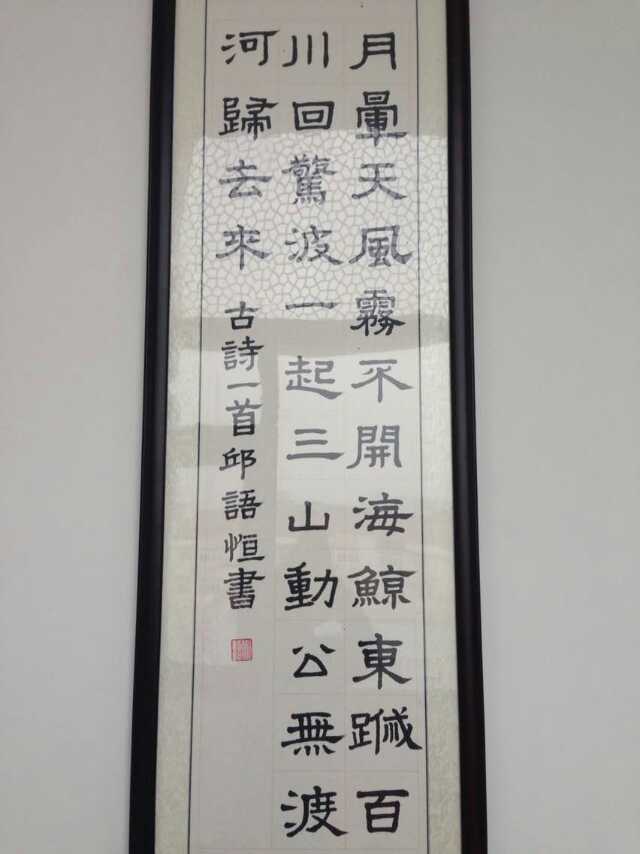 月暈天風霧不開海鯨東蹴百
川回驚波一起三山動公無渡
河歸去來 古詩一首邱語恒書